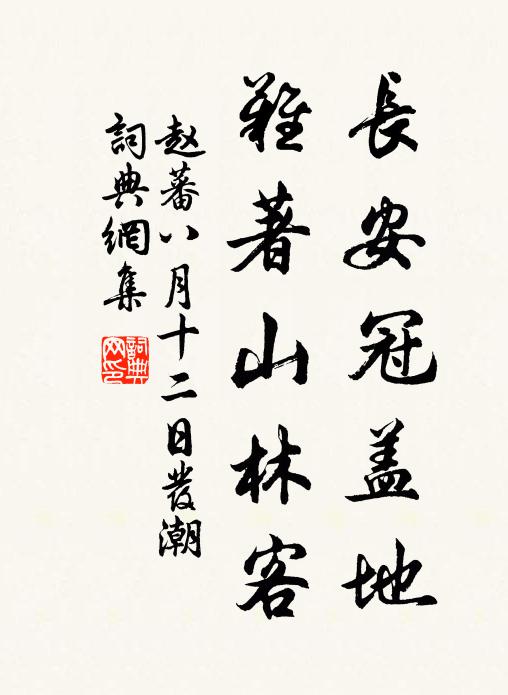 長安冠盖地
難著山林客
赵蕃八月十二日發潮
詞典網集
詞典网印